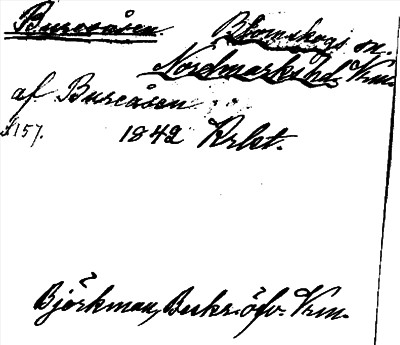 Bureåsen. Blomskogs sn.
Nordmarks hd. Vrm.
af Bureåsen
s 157. 1842 Krkt.
Björkman, Beskr. öfv. Vrm.